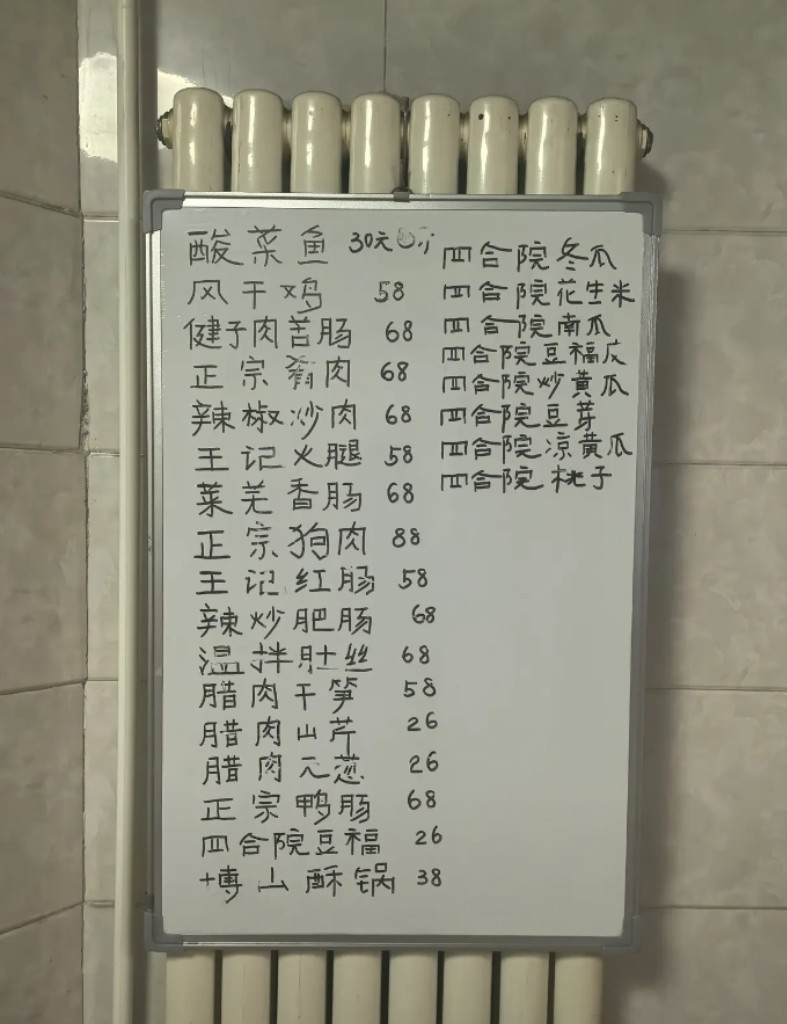 酸菜鱼 30元
风干鸡 58
健子肉苦肠 68
正宗肴肉 68
辣椒炒肉 68
王记火腿 58
莱芜香肠 68
正宗狗肉 88
王记红肠 58
辣炒肥肠 68
温拌肚丝 68
腊肉干笋 58
腊肉山芹 26
腊肉元葱 26
正宗鸭肠 68
四合院豆福 26
博山酥锅 38
四合院冬瓜
四合院花生米
四合院南瓜
四合院豆福皮
四合院炒黄瓜
四合院豆芽
四合院凉黄瓜
四合院桃子